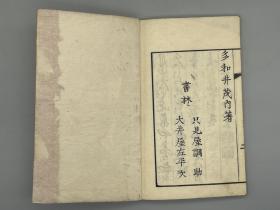 多和井茂内著
書林
只見屋調助
大井屋左平次
二